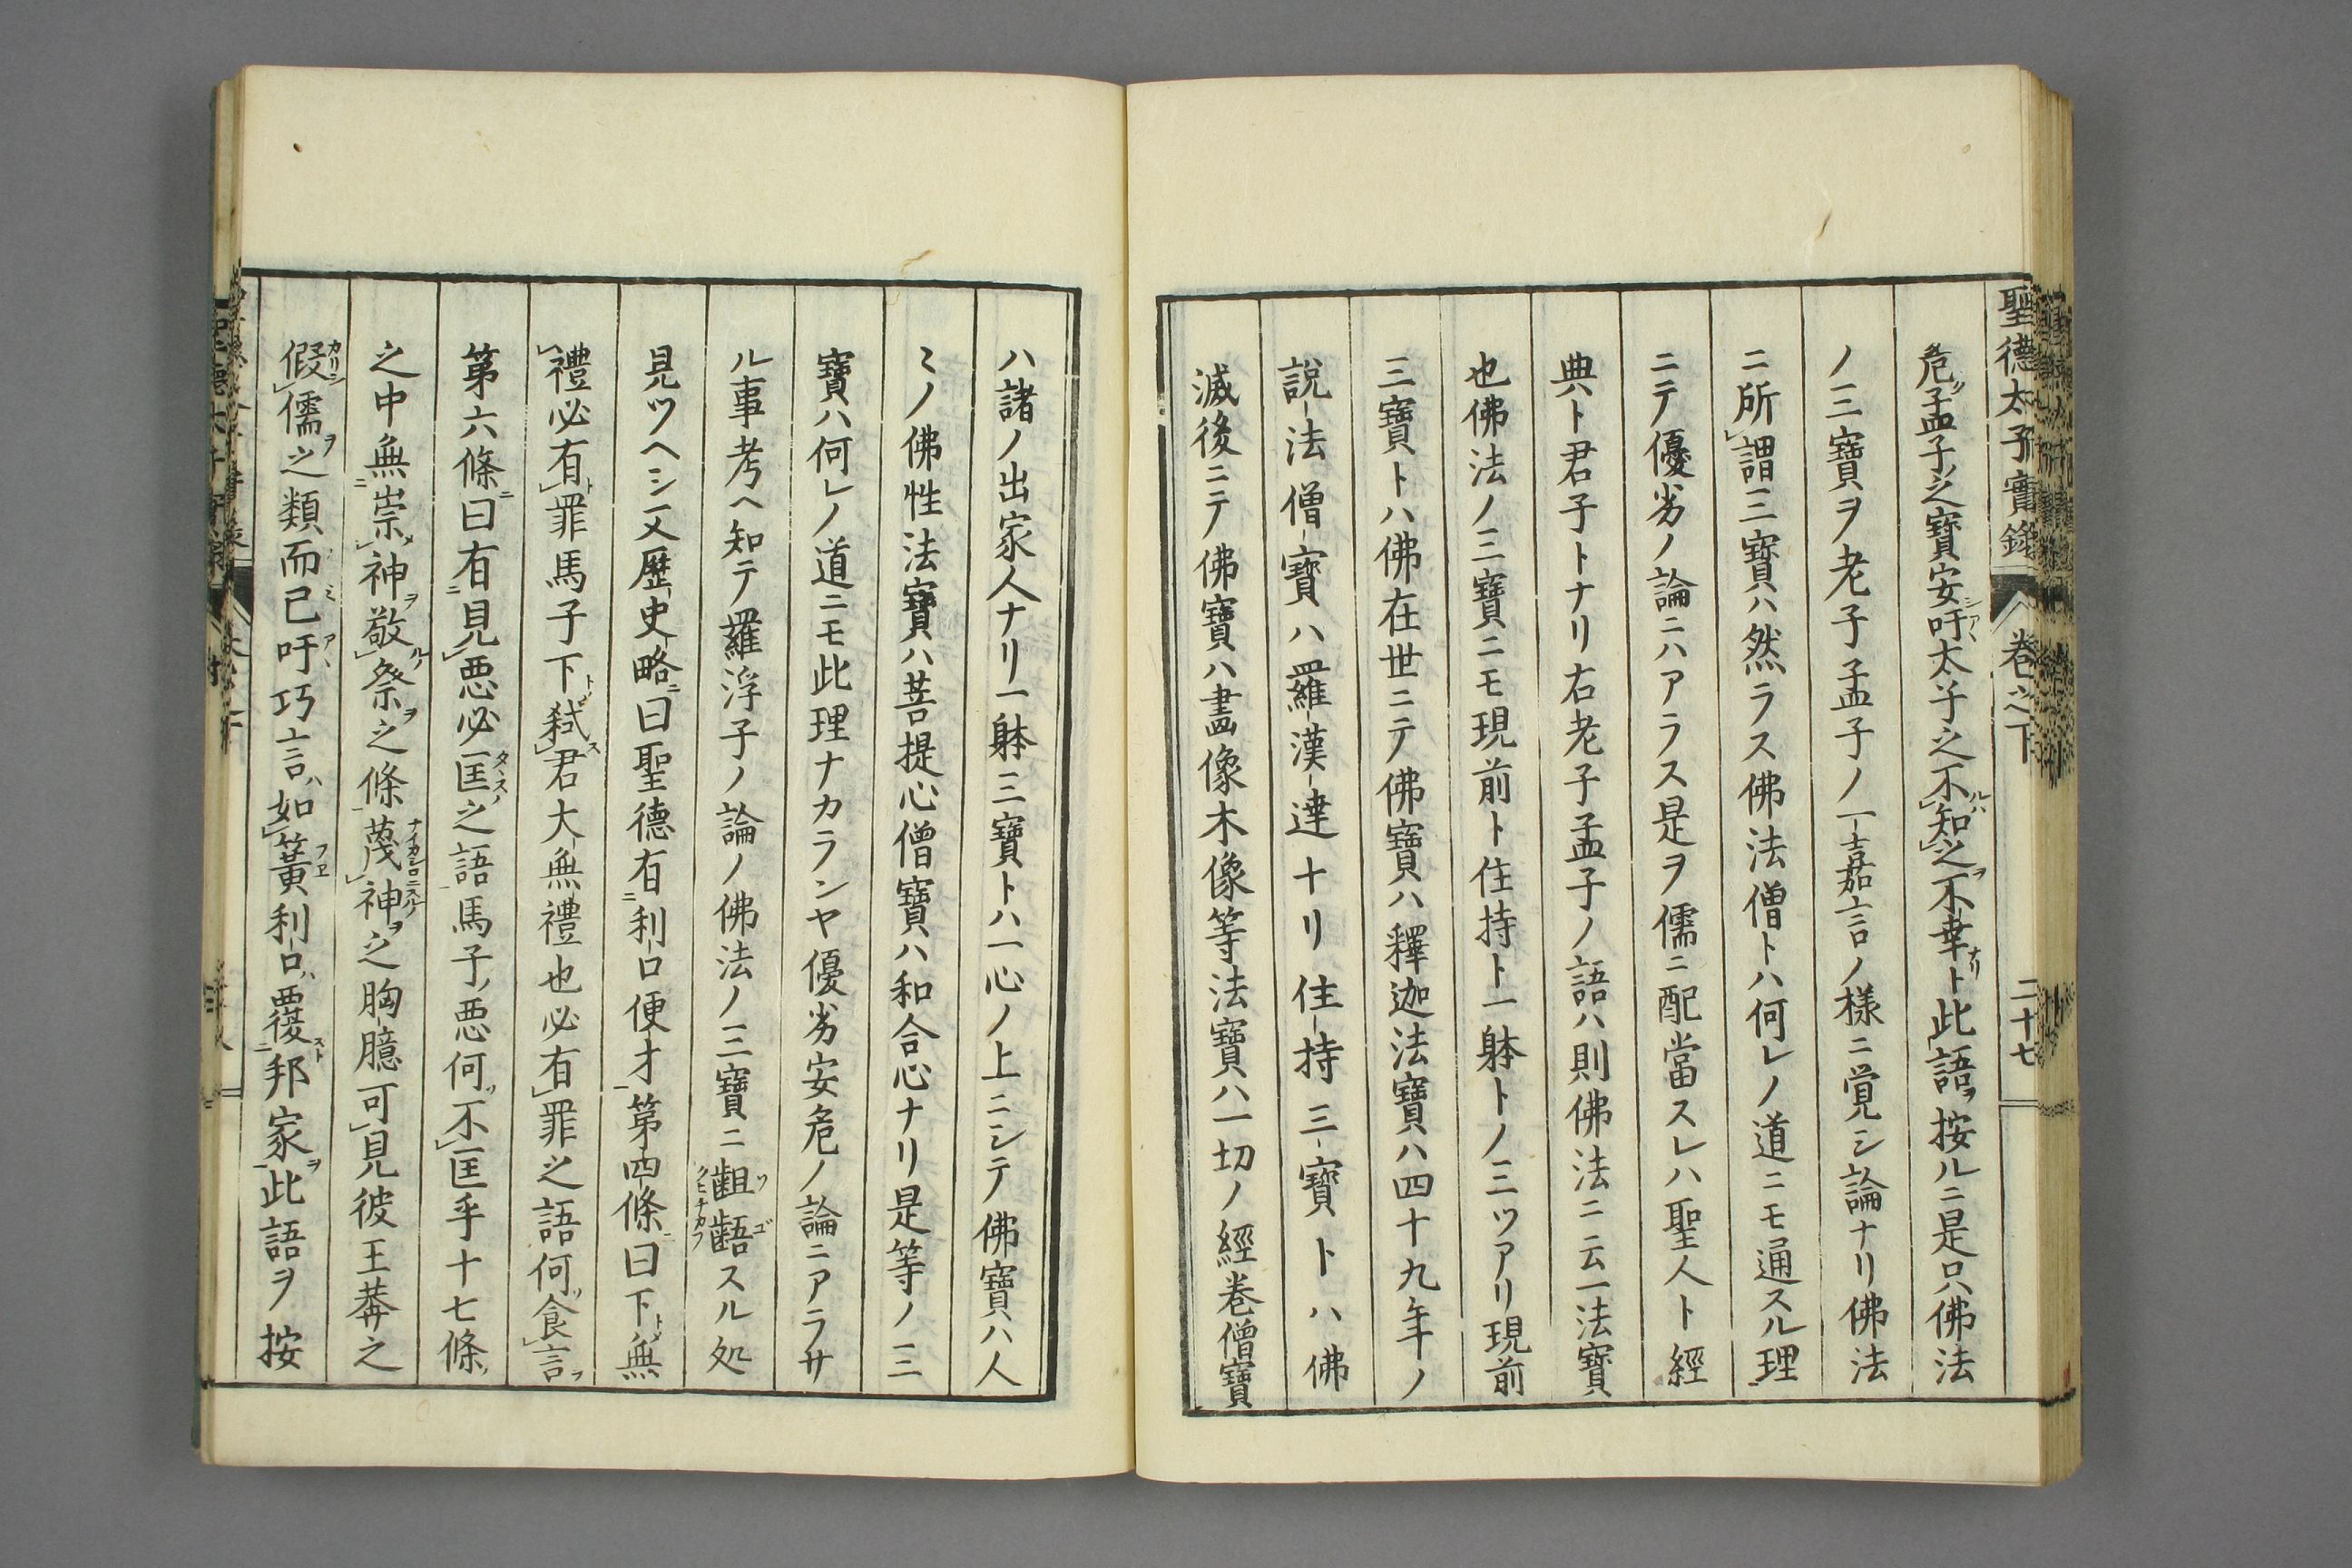 聖德太子實錄 卷之下 二十七
危孟子之寶安吁太子之不知之不幸ト此語按ルニ是只佛法
ノ三寶ヲ老子孟子ノ一嘉言ノ樣ニ覚シ論ナリ佛法
ニ所謂三寶ハ然ラス佛法僧トハ何レノ道ニモ通スル理
ニテ優劣ノ論ニハアラス是ヲ儒ニ配當スレハ聖人ト經
典ト君子トナリ右老子孟子ノ語ハ則佛法ニ云一法寶
也佛法ノ三寶ニモ現前ト住持ト一躰トノ三ツアリ現前
三寶トハ佛在世ニテ佛寶ハ釋迦法寶ハ四十九年ノ
説法僧寶ハ羅漢達ナリ住持三寶トハ佛
滅後ニテ佛寶ハ畵像木像等法寶ハ一切ノ經巻僧寶
ハ諸ノ出家人ナリ一躰三寶トハ一心ノ上ニシテ佛寶ハ人
ミノ佛性法寶ハ菩提心僧寶ハ和合心ナリ是等ノ三
寶ハ何レノ道ニモ此理ナカランヤ優劣安危ノ論ニアラサ
ル事考ヘ知テ羅浮子ノ論ノ佛法ノ三寶ニ齟齬スル処
見ツヘシ又歷史略曰聖德有利口便才第四條曰下無
禮必有罪馬子下弑君大無禮也必有罪之語何食言
第六條曰有見惡必匡之語馬子惡何不匡乎十七條
之中無崇神敬祭之條蔑神之胸臆可見彼王莽之
假儒之類而已吁巧言如簧利口覆邦家此語ヲ按